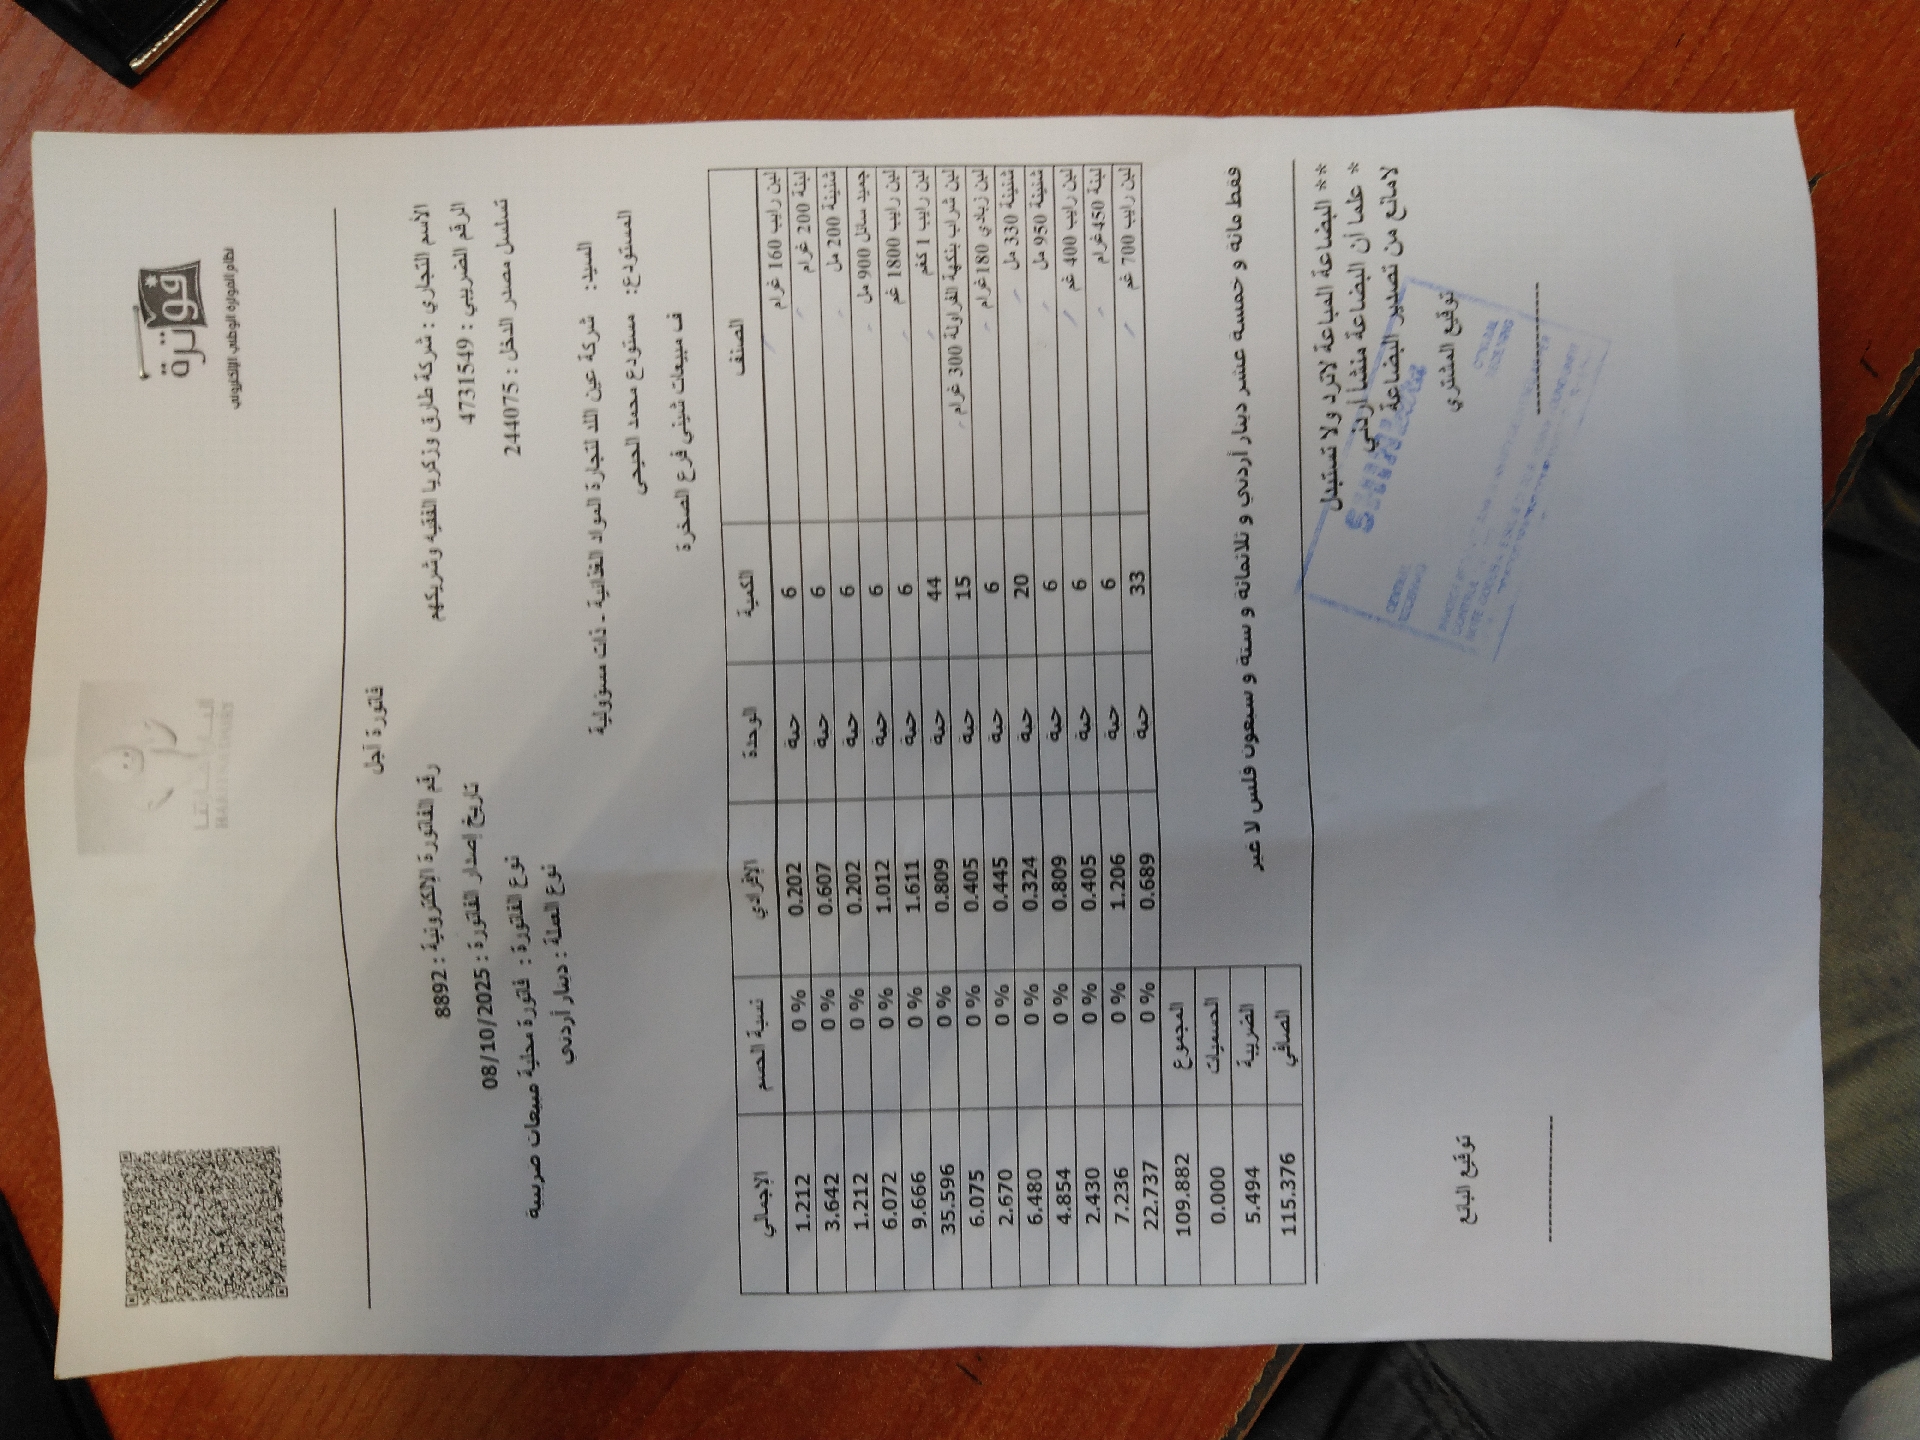 فوترة
نظام الفوترة الوطني الإلكتروني
فاتورة آجل
الأسم التجاري : شركة طارق وزكريا الفقيه وشريكهم
رقم الفاتورة الإلكترونية : 8892
الرقم الضريبي : 4731549
تاريخ إصدار الفاتورة : 08/10/2025
تسلسل مصدر الدخل : 244075
نوع الفاتورة : فاتورة محلية مبيعات ضريبية
نوع العملة : دينار أردني
السيد: شركة عين اللد لتجارة المواد الغذائية - ذات مسؤولية
المستودع: مستودع محمد الحيحي
ف مبيعات شيني فرع الصخرة
الصنف الكمية الوحدة الإفرادي نسبة الحسم الإجمالي
لبن رايب 160 غرام 6 حبة 0.202 0 % 1.212
لبنة 200 غرام 6 حبة 0.607 0 % 3.642
شنينة 200 مل 6 حبة 0.202 0 % 1.212
جميد سائل 900 مل 6 حبة 1.012 0 % 6.072
لبن رايب 1800 غم 6 حبة 1.611 0 % 9.666
لبن رايب 1 كغم 44 حبة 0.809 0 % 35.596
لبن شراب بنكهة الفراولة 300 غرام 15 حبة 0.405 0 % 6.075
لبن زبادي 180غرام 6 حبة 0.445 0 % 2.670
شنينة 330 مل 20 حبة 0.324 0 % 6.480
شنينة 950 مل 6 حبة 0.809 0 % 4.854
لبن رايب 400 غم 6 حبة 0.405 0 % 2.430
لبنة 450غرام 6 حبة 1.206 0 % 7.236
لبن رايب 700 غم 33 حبة 0.689 0 % 22.737
المجموع 109.882
الحسميات 0.000
الضريبة 5.494
الصافي 115.376
فقط مائة و خمسة عشر دينار أردني و ثلاثمائة و ستة و سبعون فلس لا غير
** البضاعة المباعة لاترد ولا تستبدل
* علما أن البضاعة منشأ أردني
لامانع من تصدير البضاعة
توقيع المشتري
توقيع البائع